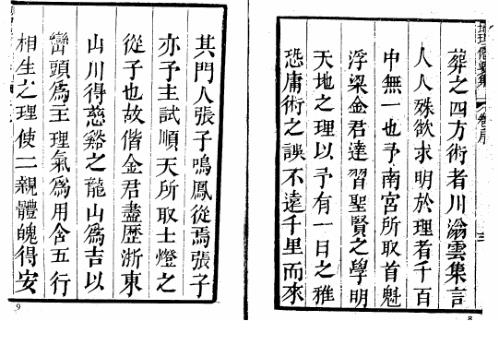 卷序
三
葬之四方術者川滃雲集言
人人殊欲求明於理者千百
中無一也予南宮所取首魁
浮梁金君達習聖賢之學明
天地之理以予有一日之雅
恐庸術之誤不遠千里而來
8
其門人張子鳴鳳從焉張子
亦予主試順天所取士燈之
從子也故偕金君盡歷浙東
山川得慈谿之龍山爲吉以
巒頭爲主理氣爲用含五行
相生之理使二親體魄得安
9